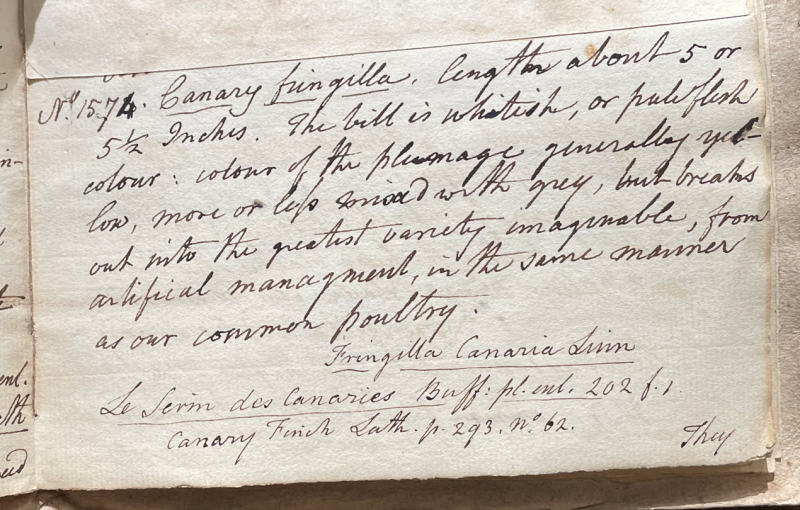 No. 1574. Canary fringilla. length about 5 or
5½ Inches. The bill is whitish, or pale flesh
colour: colour of the plumage generally yel-
low, more or less mixed with grey, but breaks
out into the greatest variety imaginable, from
artifical managment, in the same manner
as our common poultry.
Fringilla Canaria Linn
Le Serin des Canaries Buff: pl. enl. 202 f. 1.
Canary Finch Lath. p. 293. no. 62.
They